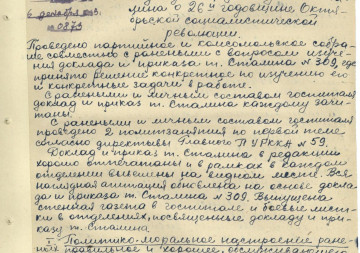 декабря 1943.
№ 0873
лина о 26й годовщине Октяб-
рьской социалистической
революции.
Проведено партийное и комсомольское собра-
ние совместно с ранеными с вопросом изуче-
ния доклада и приказа т. Сталина № 309, где
принято решение конкретное по изучению его
и конкретные задачи в работе.
С ранеными и личным составом госпиталя
доклад и приказ т. Сталина каждому зачи-
таны.
С ранеными и личным составом госпиталя
проведено 2 политзанятия по новой теме
согласно директивы Главного П УРККА № 59.
Доклад и приказ т. Сталина в редакции
хорошо отпечатаны и в рамках в каждом
отделении вывешены на видном месте. Вся
наглядная агитация обновлена на основе докла-
да и приказа т. Сталина № 309. Выпущена
стенная газета в госпитале и боевые лист-
ки в отделениях, посвященные докладу и при-
казу т. Сталина
I. Политико-моральное настроение ране-
ных правильное и хорошее, обслуживающего